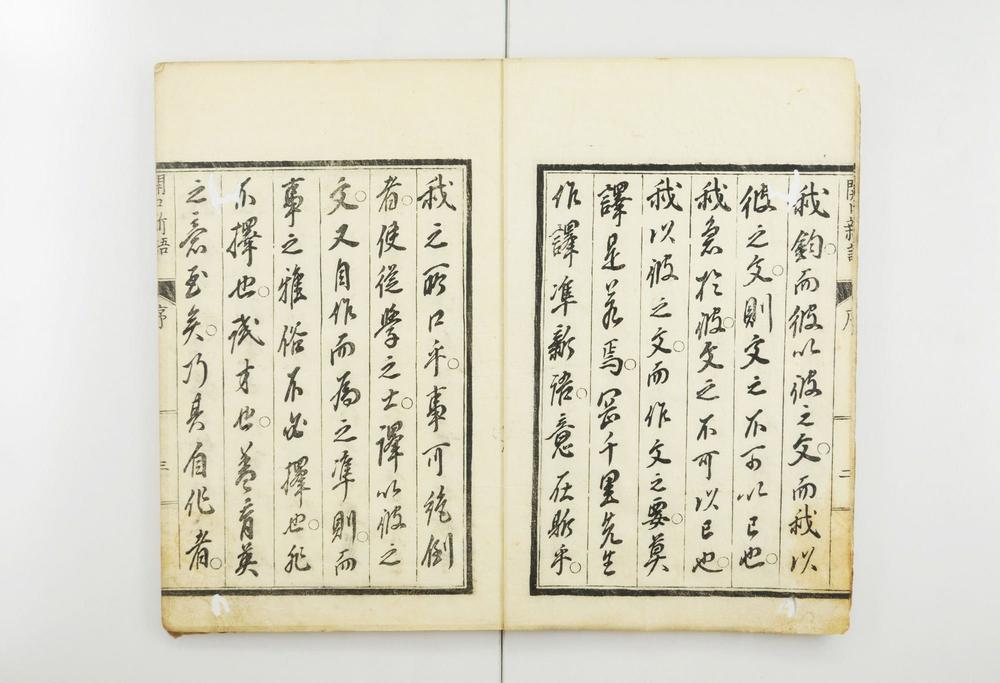 開口新語
序
二
我鈞。而彼以彼之文。而我以
彼之文。則文之不可以已也。
我急於彼。文之不可以已也。
我以彼之文。而作文之要。莫
譯是若焉。岡千里先生
作譯準新語。意在斯乎。
我之所口乎。事可絶倒
者。使從學之士。譯以彼之
文。又自作而為之準則。而
事之雅俗不必擇也。非
不擇也。試才也。蓋育英
之意至矣。乃其自作者。
開口新語
序
三